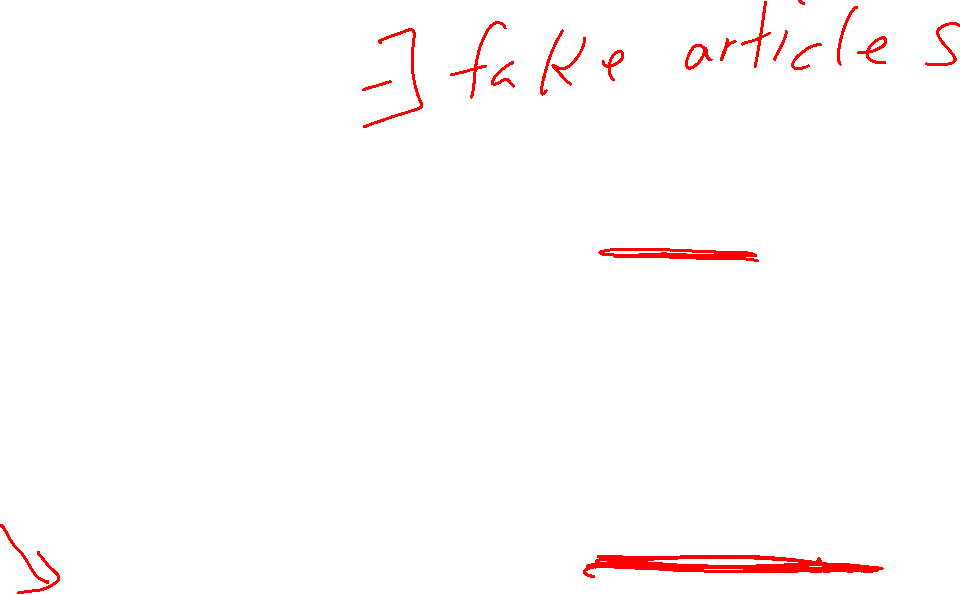 ∃ fake articles